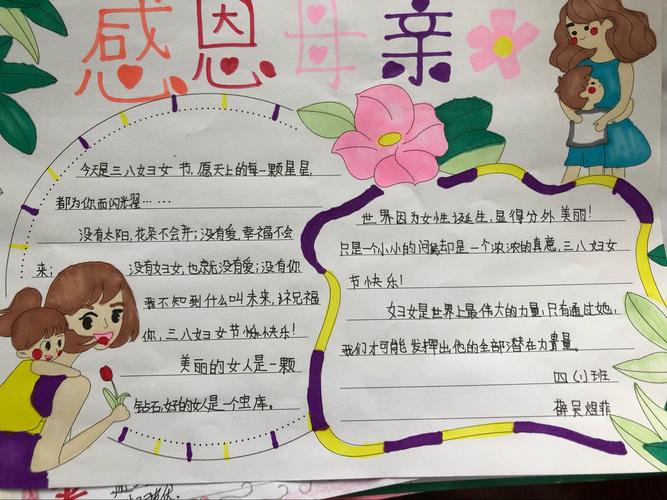 感恩母亲
今天是三八妇女节，愿天上的每一颗星星，
都为你而闪光翟……
没有太阳，花朵不会开；没有爱，幸福不会
来；没有妇女，也就没有爱；没有你
我不知到什么叫未来，祝福
你，三八妇女节愉快乐！
美丽的女人是一颗
钻石，好的女人是一个宝库。
世界因为女性诞生，显得分外美丽！
只是一个小小的问候却是一个浓浓的真意，三八妇女
节快乐！
妇女是世界上最伟大的力量，只有通过她，
我们才可能发挥出他的全部潜在力量。
四(1)班
吴煜菲